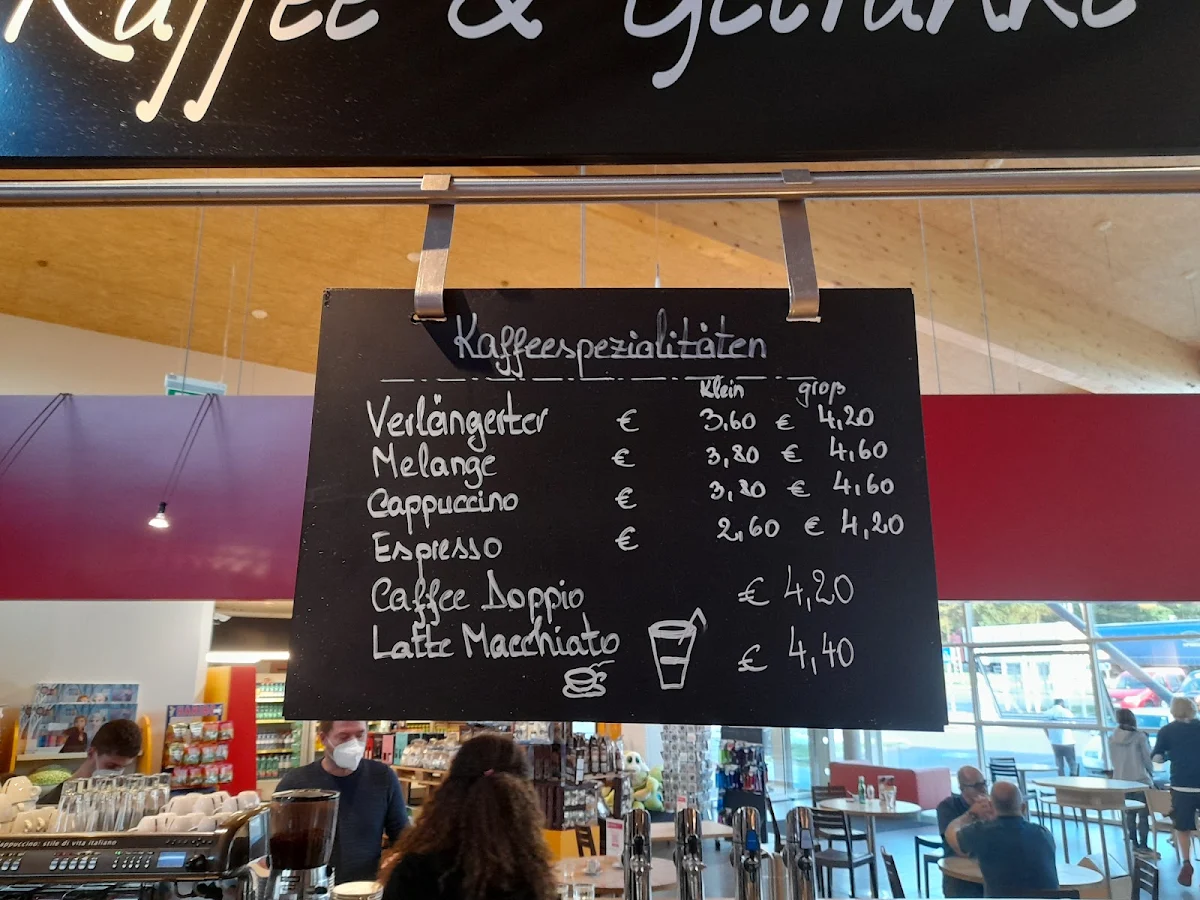 Kaffee & Getränke
Kaffeespezialitäten
Klein groß
Verlängerter € 3,60 € 4,20
Melange € 3,80 € 4,60
Cappuccino € 3,80 € 4,60
Espresso € 2,60 € 4,20
Caffee Doppio € 4,20
Latte Macchiato € 4,40
cappuccino: stile di vita italiano